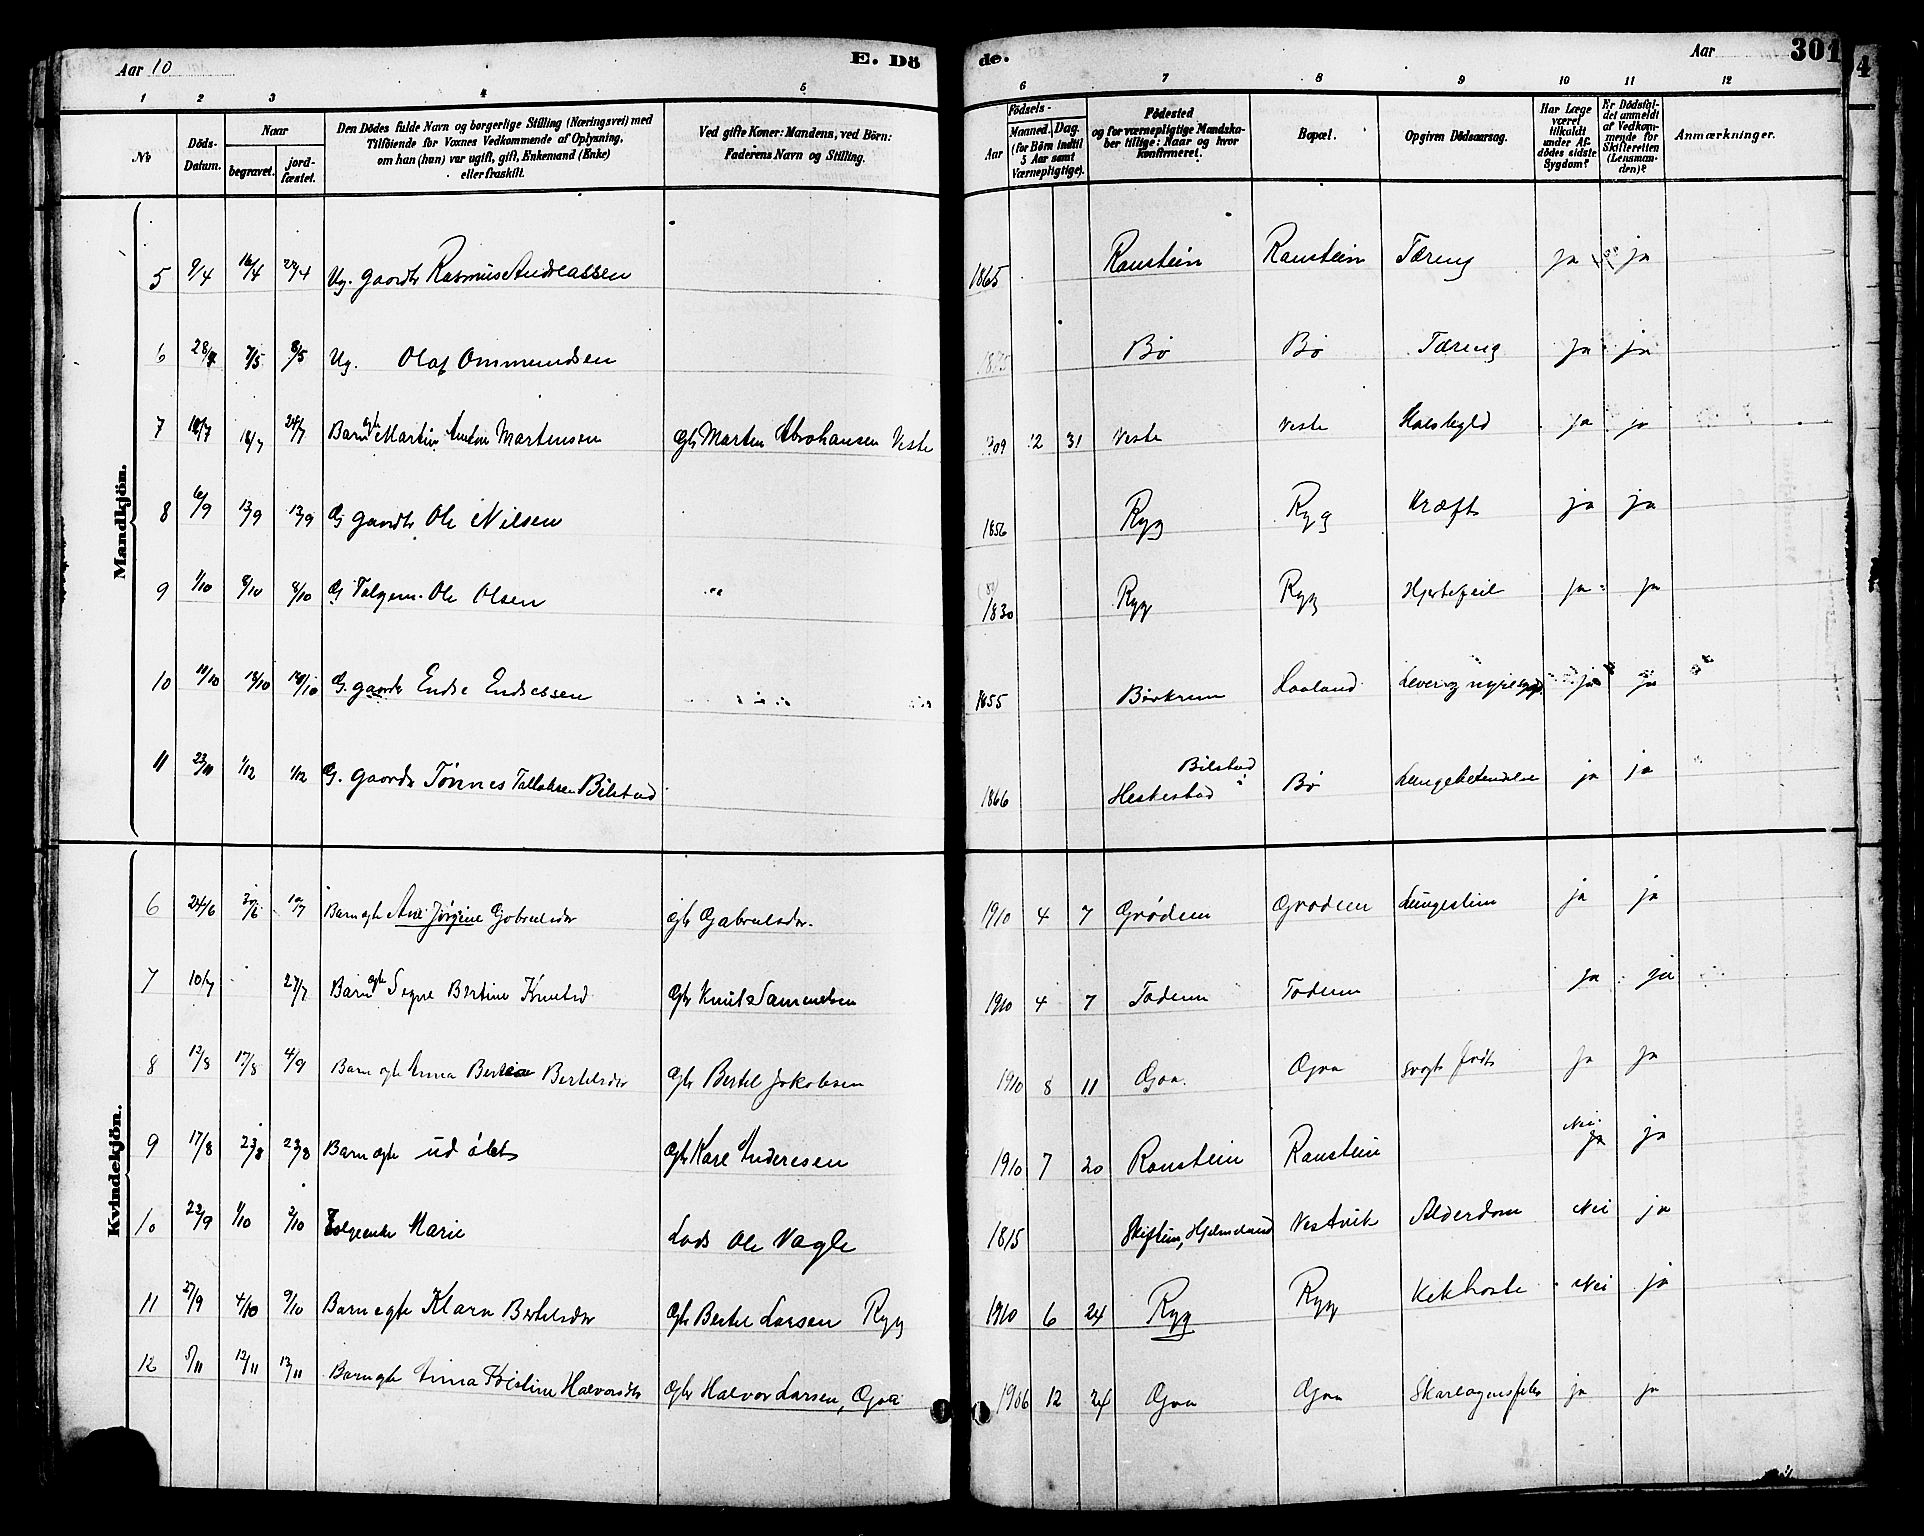 Aar 10 E. Dö de. Aar 301
1 2 3 4 5 6 7 8 9 10 11 12
No Döds-Datum. Naar begravet. jord-fæstet. Den Dödes fulde Navn og borgerlige Stilling (Næringsvei) med Tilföiende for Voxnes Vedkommende af Oplysning, om han (hun) var ugift, gift, Enkemand (Enke) eller fraskilt. Ved gifte Koner: Mandens, ved Börn: Faderens Navn og Stilling. Födsels- Aar Maaned. Dag. (for Börn indtil 5 Aar samt Værnepligtige). Födested og for værnepligtige Mandskaber tillige: Naar og hvor konfirmeret. Bopæl. Opgiven Dödsaarsag. Har Læge været tilkaldt under Afdödes sidste Sygdom? Er Dödsfaldet anmeldt af Vedkommende for Skifteretten (Lensmanden)? Anmærkninger.
Mandkjön.
5 9/4 16/4 24/4 Ug. gaardb Rasmus Andreassen 1865 Raustein Raustein Tæring ja ja
6 28/4 7/5 8/5 Ug. Olaf Ommundsen 1875 Bø Bø Tæring ja ja
7 14/7 18/7 24/7 Barn egte Martin Anton Martensen Gbr Marten Abrahamsen Veste 1909 12 31 Veste Veste Halsbyld ja ja
8 6/9 13/9 13/9 G gaardb Ole Nilsen 1856 Ryg Ryg Kræft ja ja
9 1/10 8/10 8/10 G Folgem. Ole Olsen 1830 Ryg Ryg Hjertefeil ja ja
10 11/10 18/10 18/10 G. gaardb Endre Endresen 1855 Birkrem Haaland Lever og nyresyg. ja ja
11 23/11 1/12 1/12 G. gaardb Tønnes Tollaksen Bilstad 1866 Bilstad i Hestestad Bø Lungebetendelse ja ja
Kvindekjön.
6 24/6 30/6 10/7 Barn egte Ane Jørgine Gabrielsdr Gbr Gabrielsdr. 1910 4 7 Grødem Grødem Lungeslim ja ja
7 10/7 24/7 Barn egte Signe Bertine Knutsd Gbr Knut Samuelsen 1910 4 7 Todem Todem ja ja
8 12/8 17/8 4/9 Barn egte Anna Bertea Bertelsdr Gbr Bertel Jakobsen 1910 8 11 Goa Goa svagt født ja ja
9 17/8 23/8 23/8 Barn egte ud øbt Gbr Karl Andresen 1910 7 20 Raustein Raustein Nei ja ja
10 22/9 1/10 2/10 Folgeenke Marie Lods Ole Vagle 1815 Skiftun, Hjelmeland Vestvik Alderdom Nei ja
11 27/9 4/10 9/10 Barn egte Klara Bertelsdr Gbr Bertel Larsen Ryg 1910 6 24 Ryg Ryg Kikhoste Nei ja
12 5/11 12/11 13/11 Barn egte Anna Kristine Halvorsdtr Gbr Halvor Larsen, Goa 1906 12 24 Goa Goa Skarlagensfeber ja ja